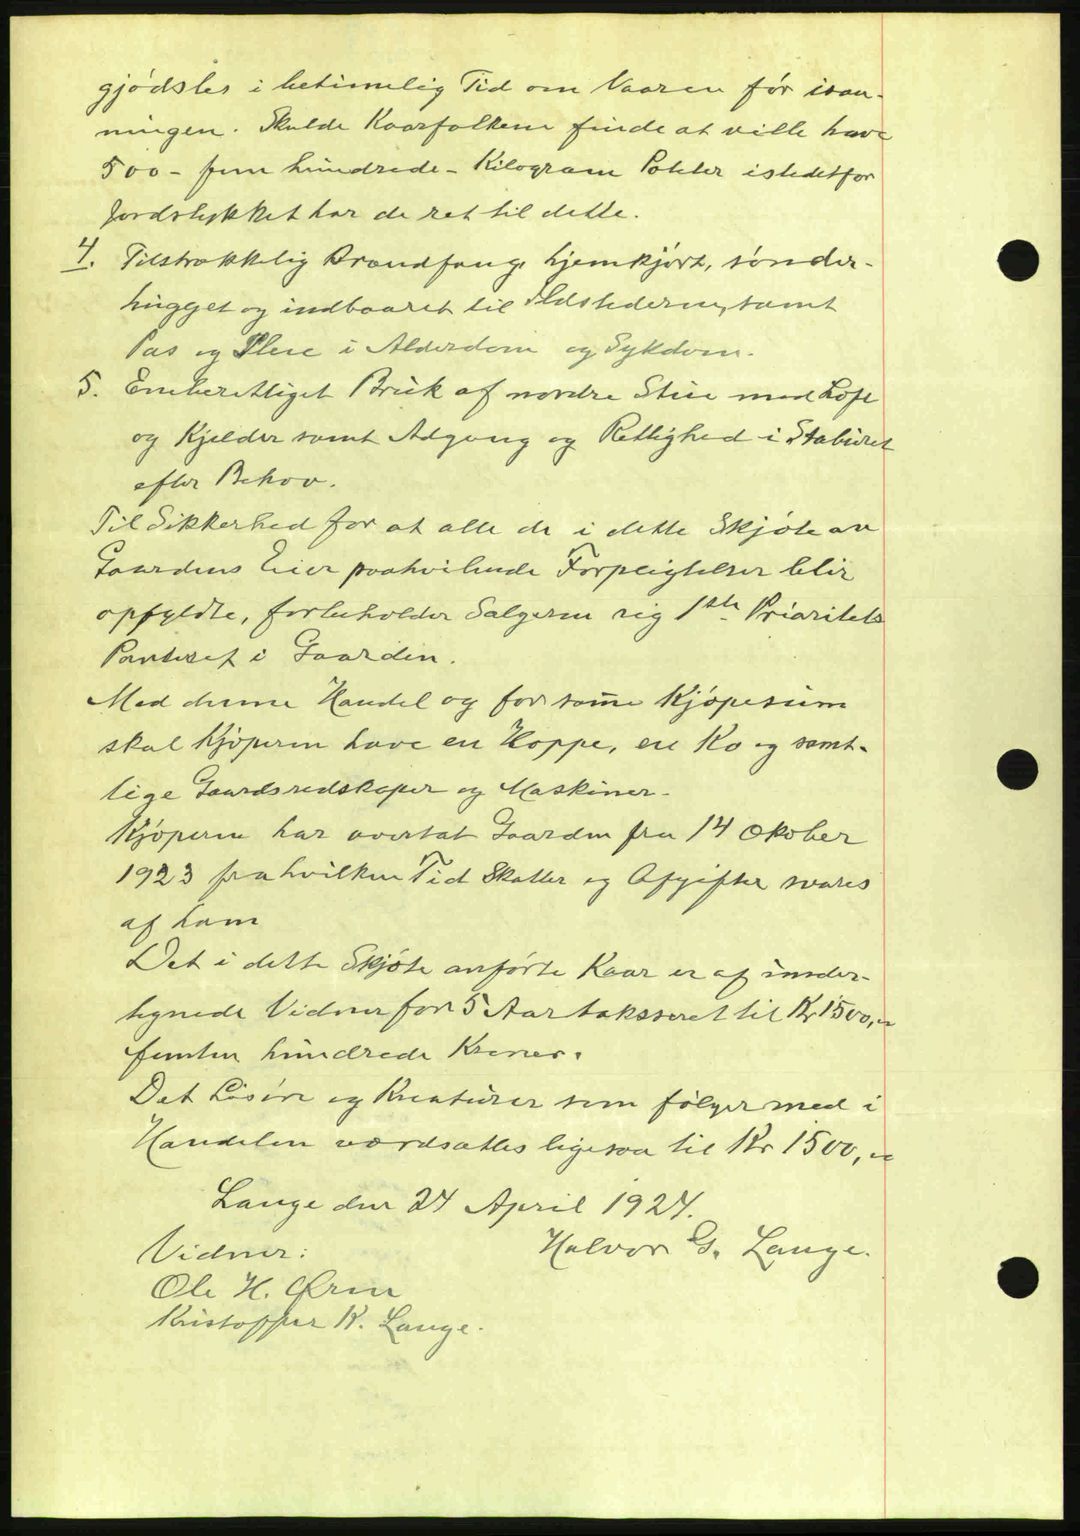 gjødsles i betimelig Tid om Vaaren før isaa-
ningen. Skulde Kaarfolkene finde at ville have
500 - fem hundrede - Kilogram Poteter istedetfor
Jordstykket har de ret til dette.
4. Tilstrækkelig Brændfang, hjemkjørt, sønder-
hugget og indbaaret til Ildstederne, samt
Pas og Pleie i Alderdom og Sykdom.
5. Eneberettiget Bruk af nordre Stue med Loft
og Kjelder samt Adgang og Rettighed i Staburet
efter Behov.
Til Sikkerhed for at alle de i dette Skjøte av
Gaardens Eier paahvilende Forpligtelser blir
opfyldte, forbeholder Sælgeren sig 1ste Prioritets
Panteret i Gaarden.
Med denne Handel og for samme Kjøpesum
skal Kjøperen have en Hoppe, en Ko og samt-
lige Gaardsredskaper og Maskiner.
Kjøperen har overtat Gaarden fra 14 Okober
1923 fra hvilken Tid Skatter og Afgifter svares
af ham
Det i dette Skjøte anførte Kaar er af under-
tegnede Vidner for 5 Aar taksseret til Kr 1500,-
femten hundrede Kroner.
Det Løsøre og Kreaturer som følger med i
Handelen værdsættes ligesaa til Kr 1500,-
Lauge den 24 April 1924.
Vidner: Halvor G. Lauge.
Ole H. Øren
Kristoffer K. Lauge.